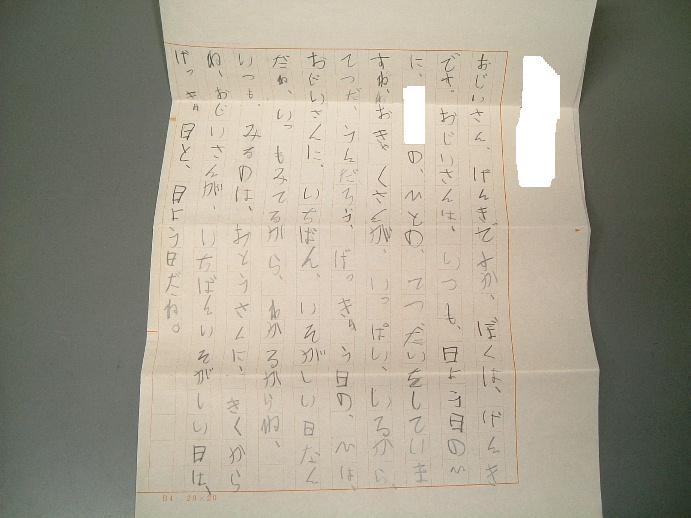 おじいさん、げんきですか、ぼくは、げんき
です。おじいさんは、いつも、日よう日のひ
に、の、ひとの、てつだいをしていま
すね、おきゃくさんが、いっぱい、いるから、
てつだ、うんだろう、げっきゅう日の、ひは、
おじいさんに、いちばん、いそがしい日なん
だね、いつもみてるから、わかるからね、
いつも、みるのは、おとうさんに、きくから
ね、おじいさんが、いちばんいそがしい日は、
げっきゅう日と、日よう日だね。
B4 20×20